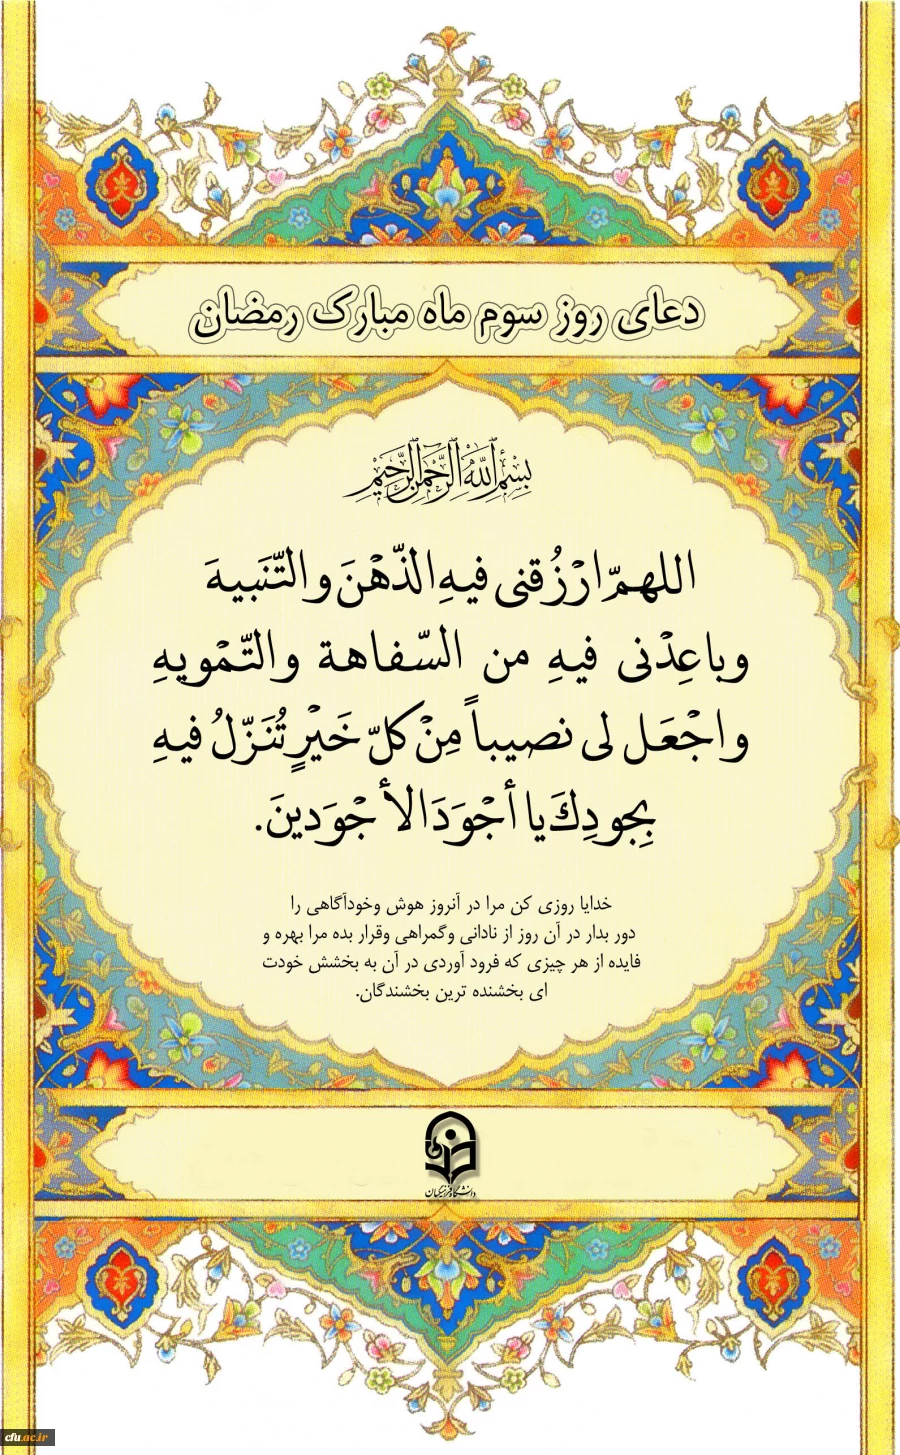 دعای روز سوم ماه مبارک رمضان
بِسْمِ اللَّهِ الرَّحْمٰنِ الرَّحِيمِ
اللهمّ ارْزُقنی فيهِ الذّهْنَ والتّنَبيهَ
وباعِدْنی فيهِ من السّفاهة والتّمْويهِ
واجْعَل لی نصيباً مِنْ كلّ خَيْرٍ تُنَزّلُ فيهِ
بِجودِكَ يا أجْوَدَ الأجْوَدينَ.
خدایا روزی کن مرا در آنروز هوش وخودآگاهی را
دور بدار در آن روز از نادانی وگمراهی وقرار بده مرا بهره و
فایده از هر چیزی که فرود آوردی در آن به بخشش خودت
ای بخشنده ترین بخشندگان.
دانشگاه فرهنگیان
cfu.ac.ir